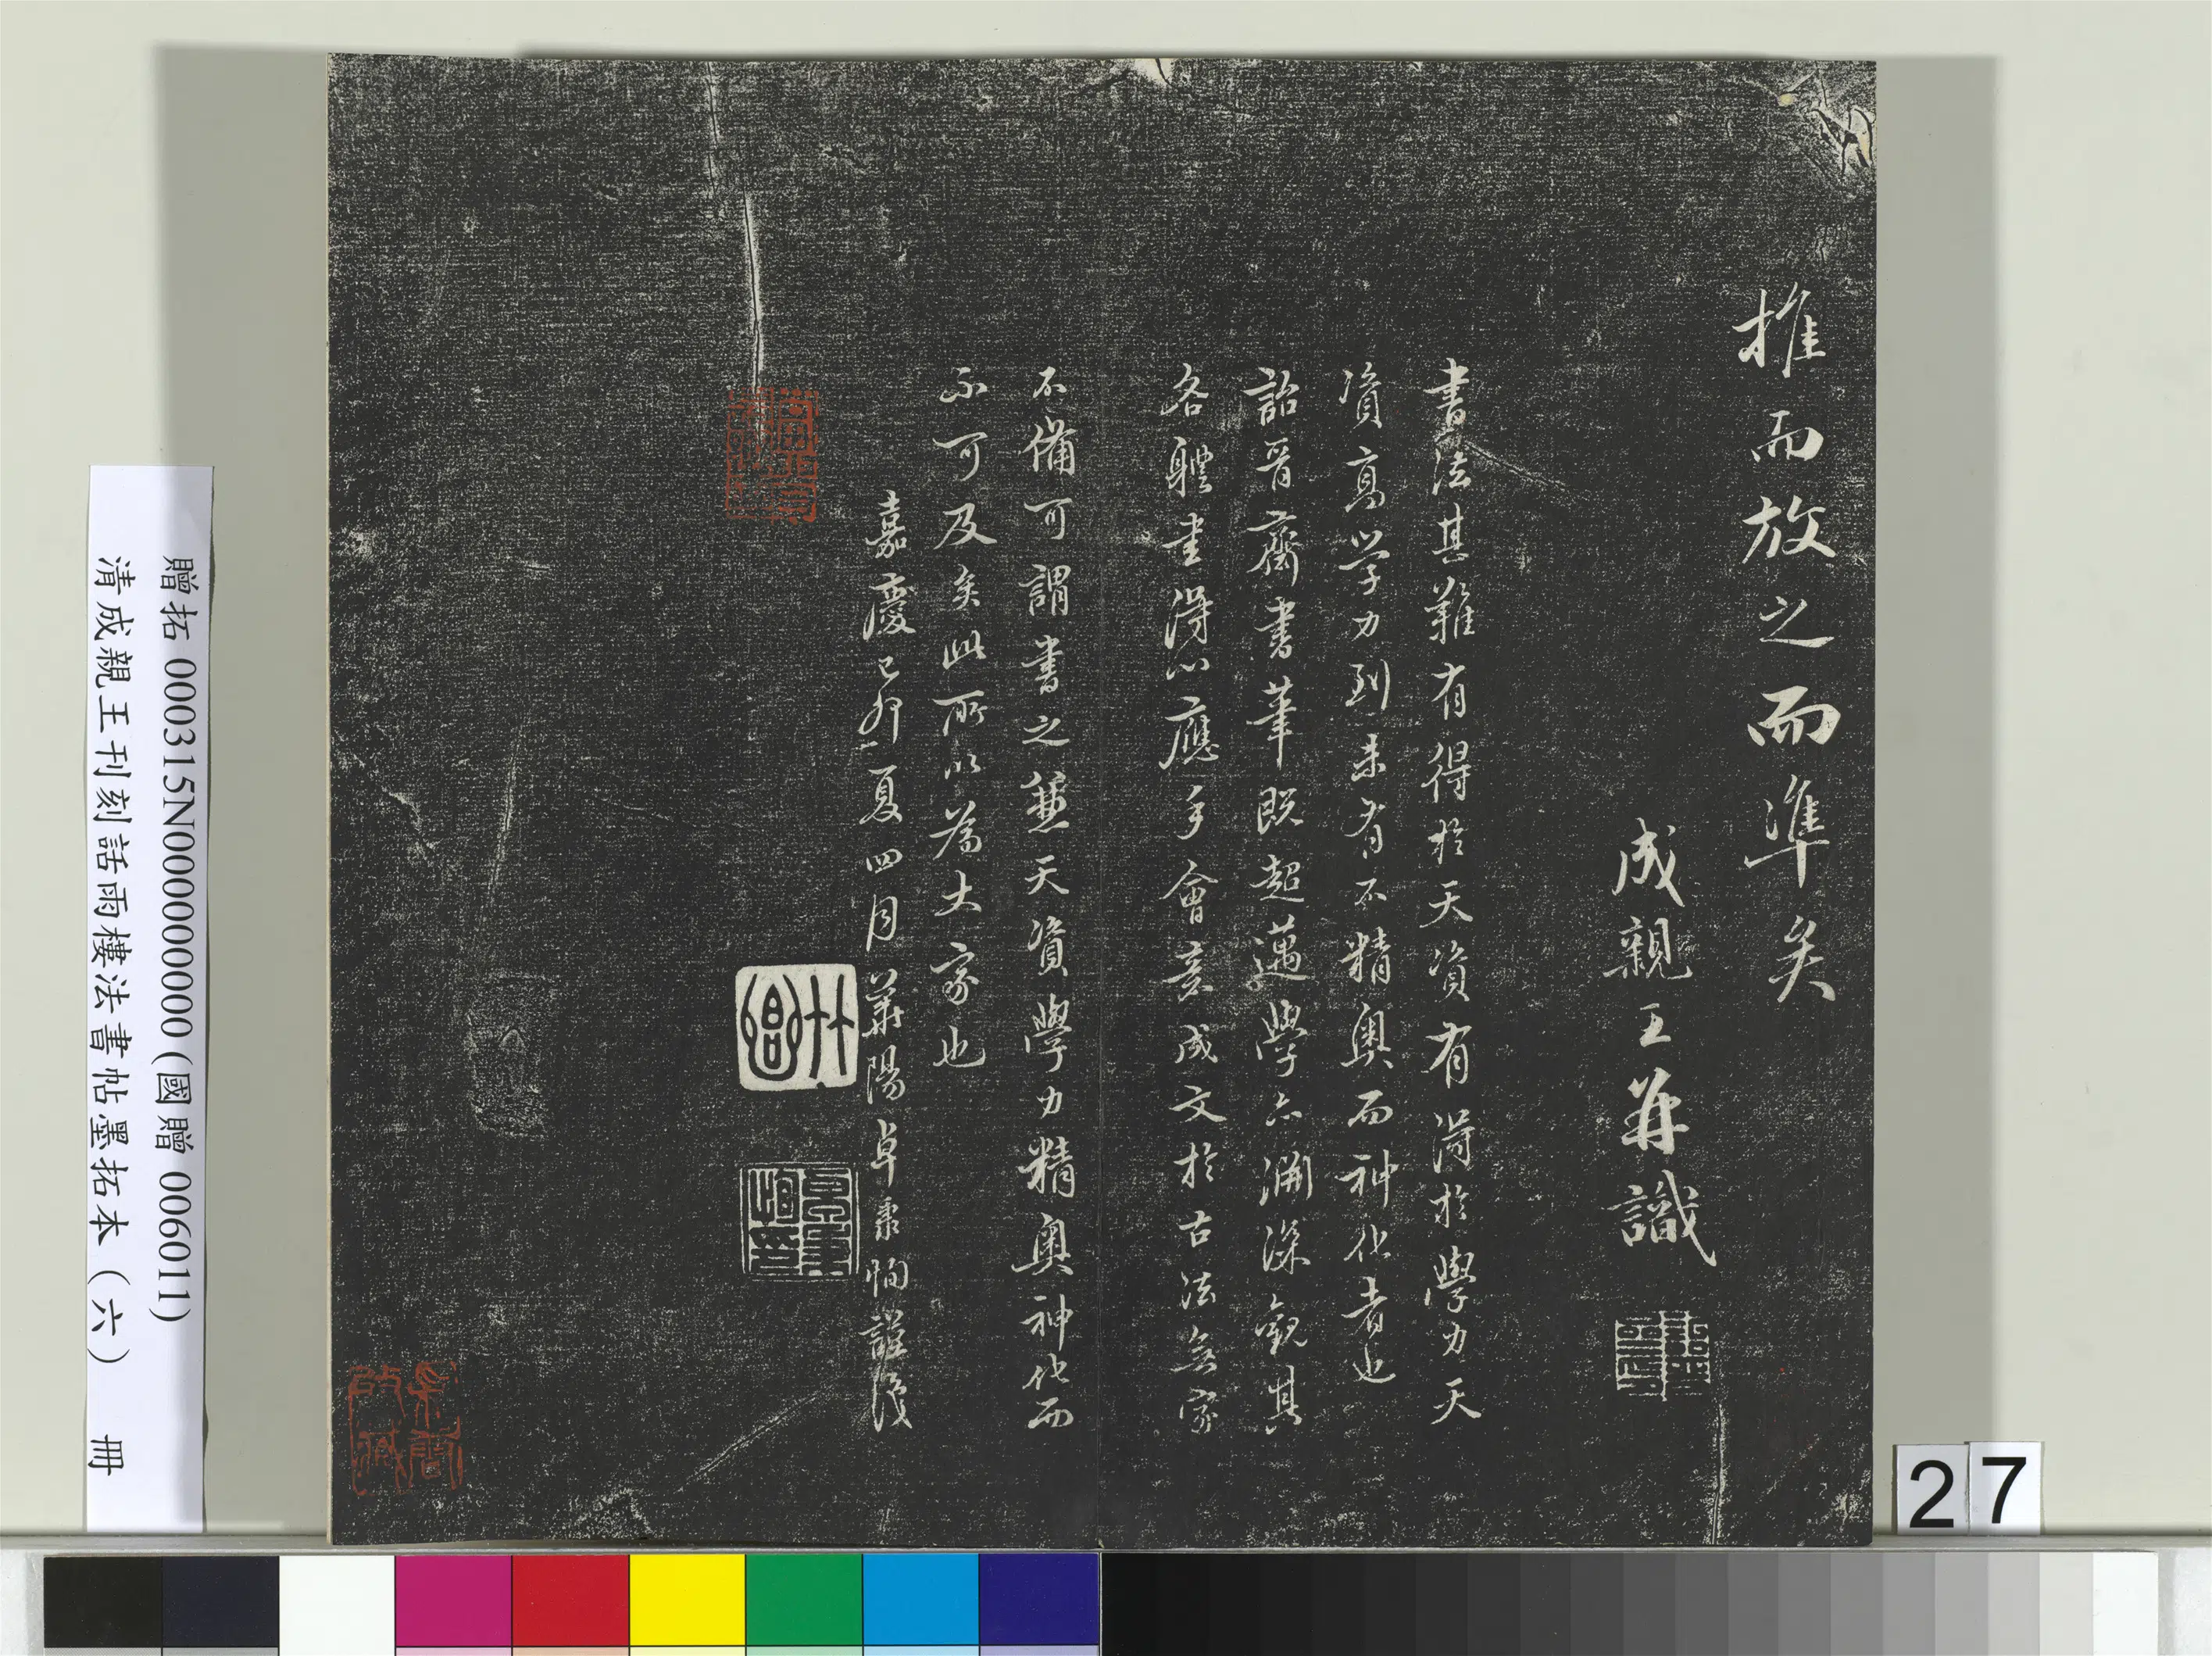 推而放之而準矣
成親王并識
書法甚難有得於天資有得於學力天
資高學力到未有不精奧而神化者也
詒晉齋書筆既超邁學亦淵深觀其
各體書得心應手會意成文於古法無家
不備可謂書之兼天資學力精奧神化而
不可及矣此所以為大家也
嘉慶己卯夏四月華陽卓秉恬謹識
27
贈拓 000315N000000000 (國贈 006011)
清成親王刊刻話雨樓法書帖墨拓本（六） 冊